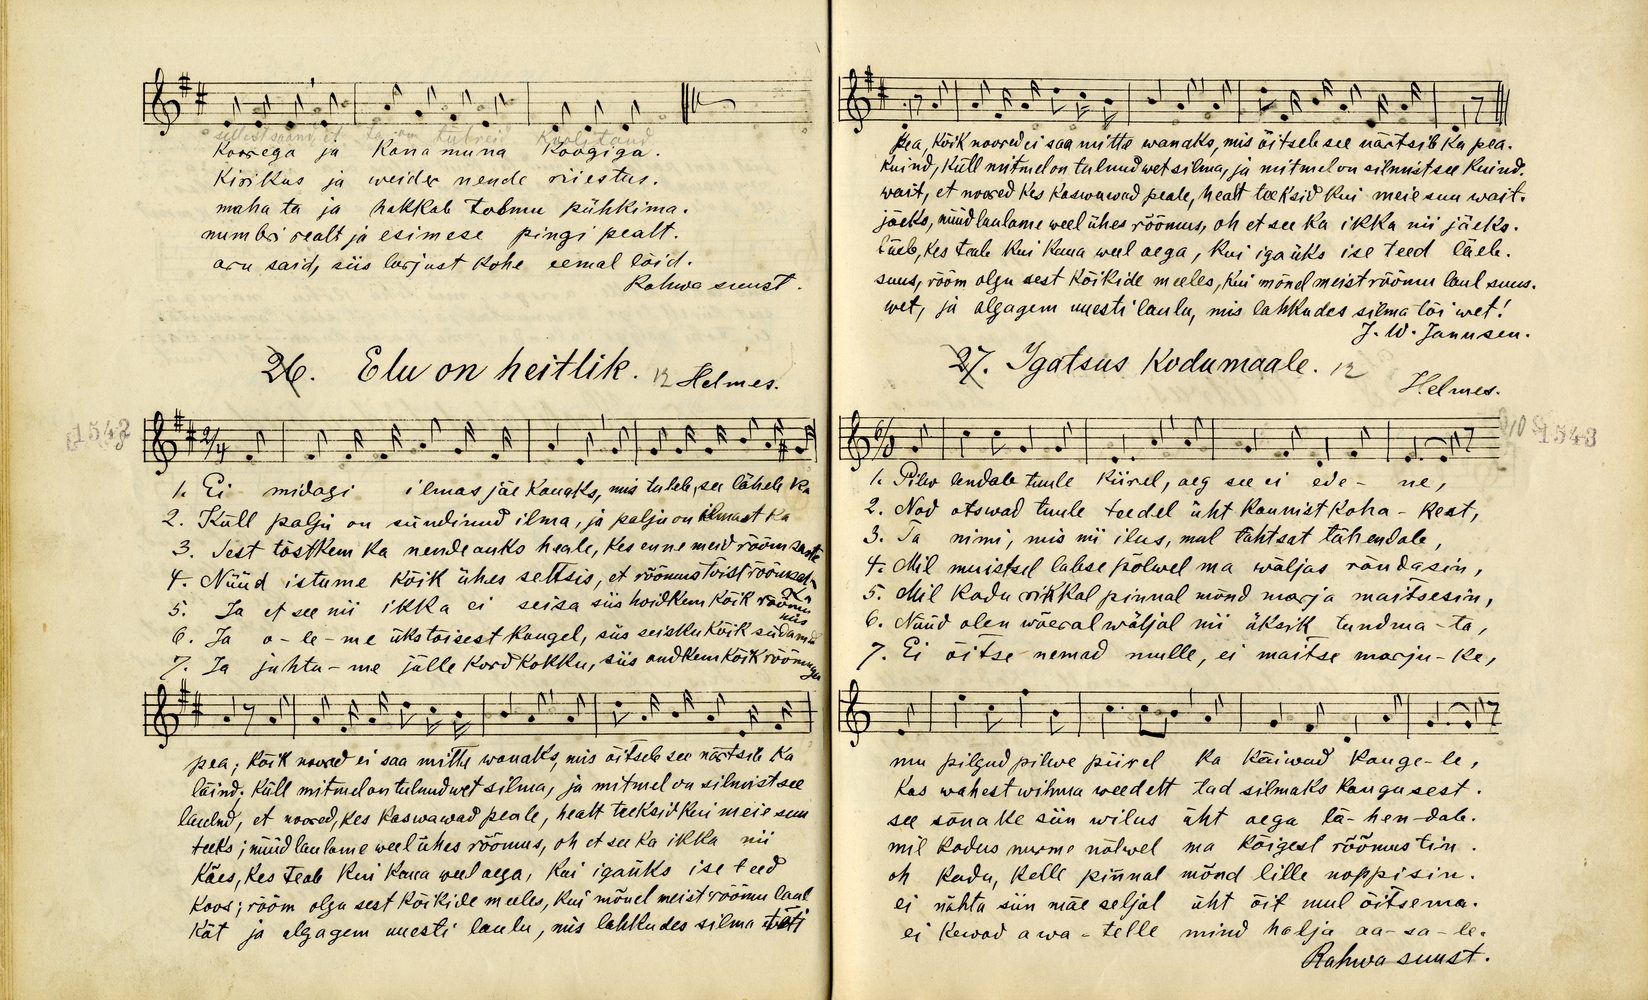 Koorega ja Kanamuna Koogiga.
Kirikus ja weider nende riiestus.
maha ta ja hakkab tolmu pühkima.
numbri sealt ja esimese pingi pealt.
aru said, siis larjust kohe eemal lõid.
Rahwa suust.
26. Elu on heitlik. 12 Helmes.
1542
2/4
1. Ei midagi ilmas jäe kauaks, mis tuleb, see läheb ka
2. Küll palju on sündinud ilma, ja palju on ilmast ka
3. Sest tõstkem ka nende auks heale, kes enne meid rõõmsaste
4. Nüüd istume kõik ühes seltsis, et rõõmus tõist
5. Ja et see nii ikka ei seisa siis hoidkem kõik rõõmu
6. Ja o-le-me ükstõisest kaugel, siis seisku kõik südamed
7. Ja juhtu-me jälle kord kokku, siis andkem kõik rõõmuga
pea; kõik noored ei saa mitte wanaks, mis õitseb see närtsib ka
läind; küll mitmel on tulnud wet silma, ja mitmel on silmist see
laulnd, et noored, kes kaswawad peale, healt teeksid kui meie suu
teeks; nüüd laulame weel ühes rõõmus, oh et see ka ikka nii
Käes, kes teab kui kaua weel aega, kui igaüks ise teed
Koos; rõõm olgu sest kõikide meeles, kui mõnel meist rõõmu laul
Kät ja algagem uuesti laulu, mis lahkudes silma tõi
pea, kõik noored ei saa mitte wanaks, mis õitseb see närtsib ka pea.
kuind, küll mitmel on tulnud wet silma, ja mitmel on silmist see kuind.
wait, et noored kes kaswawad peale, healt teeksid kui meie suu wait.
jäeks, nüüd laulame weel ühes rõõmus, oh et see ka ikka nii jäeks.
läeb, kes teab kui kaua weel aega, kui igaüks ise teed läeb.
suus, rõõm olgu sest kõikide meeles, kui mõnel meist rõõmu laul suus.
wet, ja algagem uuesti laulu, mis lahkudes silma tõi wet!
J. W. Jannsen.
27. Igatsus Kodumaale. 12
Helmes.
1543
6/8
1. Pilw lendab tuule kiirel, aeg see ei ede-ne,
2. Nad otswad tuule teedel üht kaunist koha-kest,
3. Ta nimi, mis nii ilus, mul tähtsat tähendab,
4. Mil muistsel lapse põlwel ma wäljas rändasin,
5. Mil kodu rikkal pinnal mõnd marja maitsesin,
6. Nüüd olen wõeral wäljal nii üksik tundma-ta,
7. Ei õitse nemad mulle, ei maitse marju-ke,
mu pilgud pilwe piirel ka käiwad kauge-le,
kas wahest wihma weedelt tad silmaks kaugusest.
see sõnake siin wilus üht aega tä-hen-dab.
mil kodus nurme nõlwel ma kõigest rõõmustin.
oh kodu, kelle pinnal mõnd lille noppisin.
ei nähta siin mäe seljal üht õit mul õitsema.
ei kewad awa-telle mind halja aa-sa-le.
Rahwa suust.